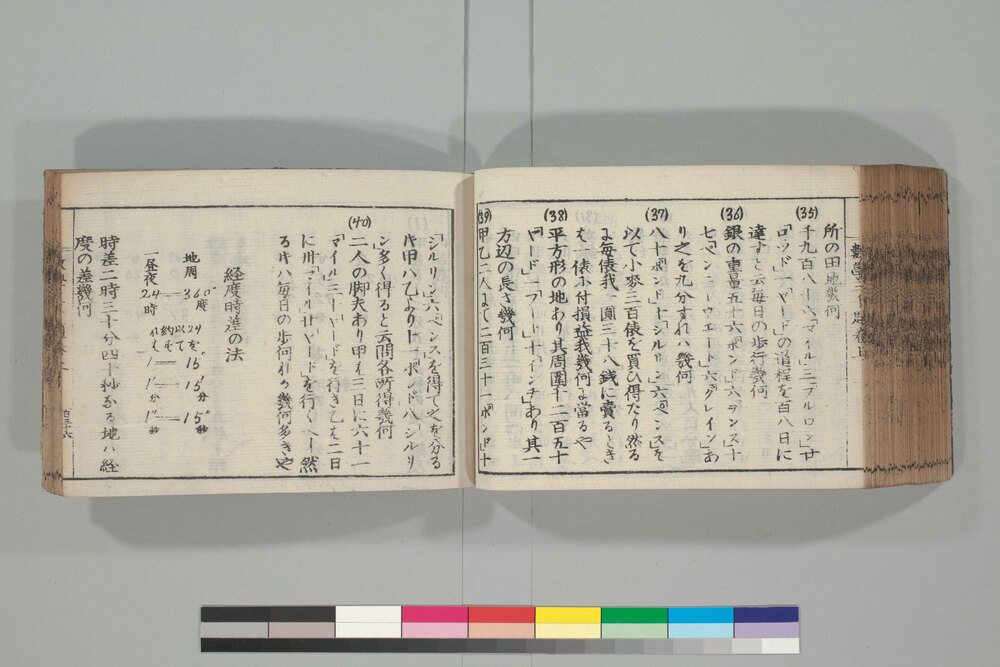 所の田地幾何
(35)
千九百八十六「マイル」三「フルロン」廿
「ロッド」一「ヤード」の道程を百八日に
達すと云毎日の歩行幾何
(36)
銀の重量五十六「ポンド」六「ヲンス」十
七「ペンニーウエート」六「グレイン」あ
り之を九分すれハ幾何
(37)
八十「ポンド」十「シルリン」六「ペンス」を
以て小麥三百俵を買ひ得たり然る
に毎俵我一圓三十八錢に賣るとき
も一俵に付損益我幾何に當るや
(38)
平方形の地あり其周圍十二百五十
「ヤード」一「フート」十「インチ」あり其一
方辺の長さ幾何
(39)
甲乙二人にて二百三十一「ポンド」十
「シルリン」六「ペンス」を得て之を分る
キ甲ハ乙より十一「ポンド」八「シルリ
ン」多く得ると云問各所得幾何
(40)
二人の脚夫あり甲も三日に六十一
「マイル」三十「ヤード」を行き乙も二日
に卅「マイル」廿「ヤード」を行くべし然
るキハ毎日の歩何れか幾何多きや
経度時差の法
地周 360°度
一昼夜 24時
24を以て約すれも
1時 15°
1'分 15'分
1"秒 15"秒
時差二時三十分四十秒なる地ハ経
度の差幾何